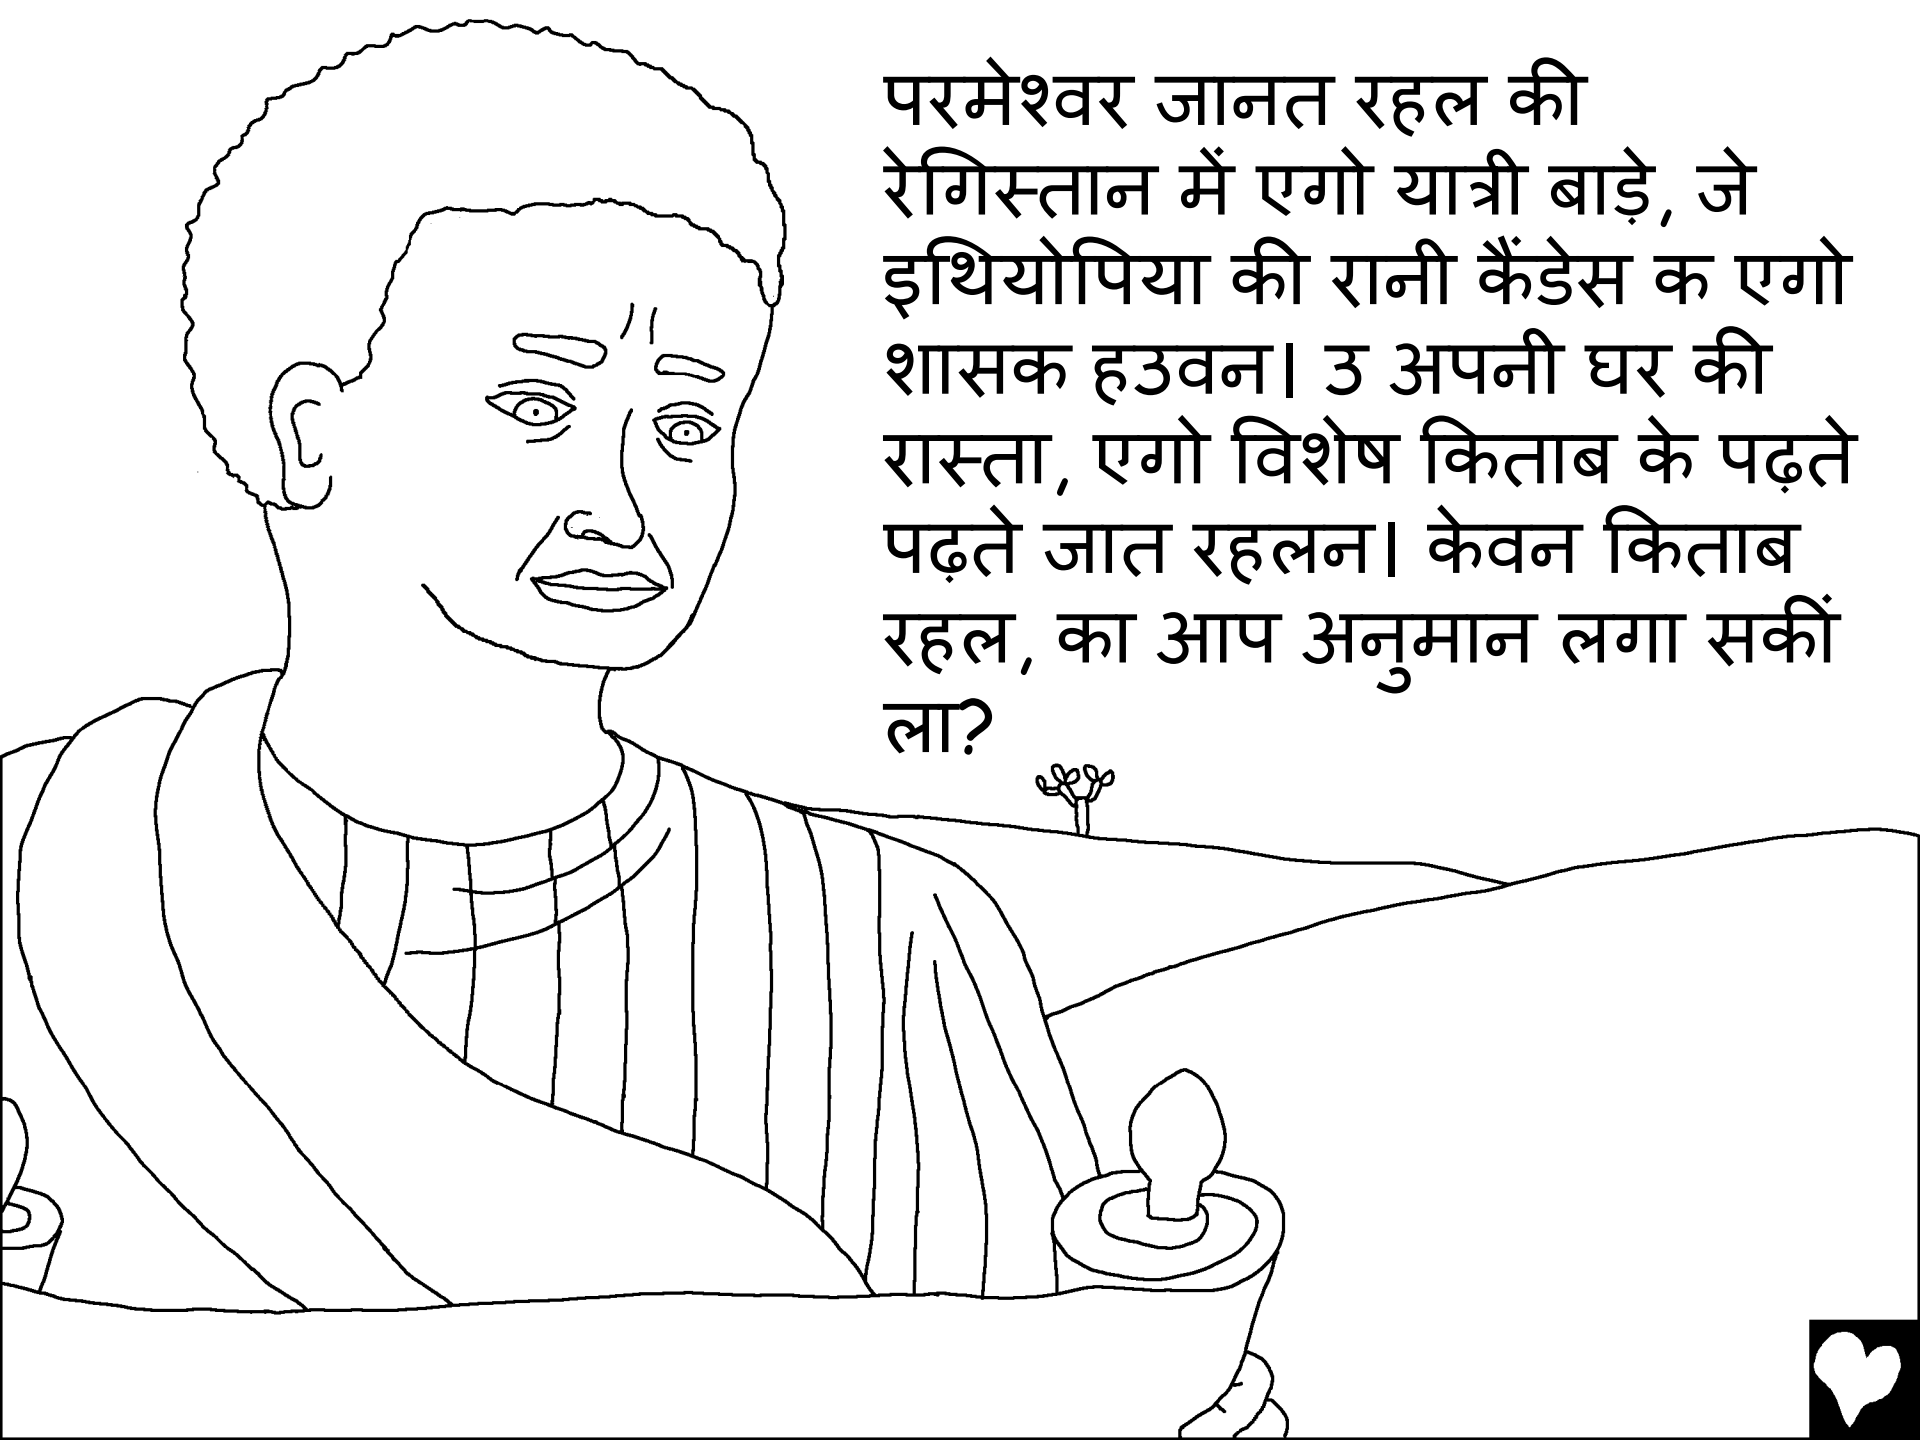 परमेश्वर जानत रहल की
रेगिस्तान में एगो यात्री बाड़े, जे
इथियोपिया की रानी कैंडेस क एगो
शासक हउवन। उ अपनी घर की
रास्ता, एगो विशेष किताब के पढ़ते
पढ़ते जात रहलन। केवन किताब
रहल, का आप अनुमान लगा सकीं
ला?